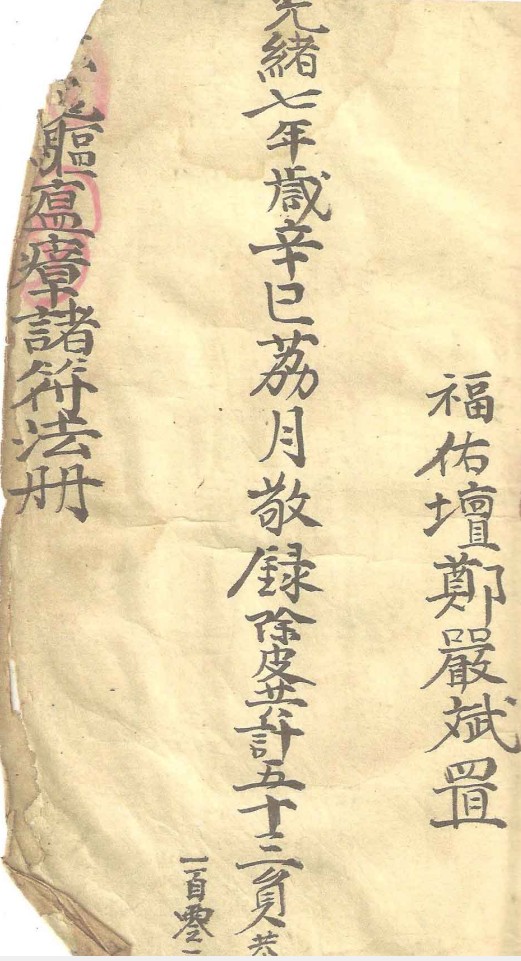 福佑壇鄭嚴斌置
光緒七年歲辛巳荔月敬録除皮共計五十三頁恭
一百零一
軀瘟瘴諸符法册